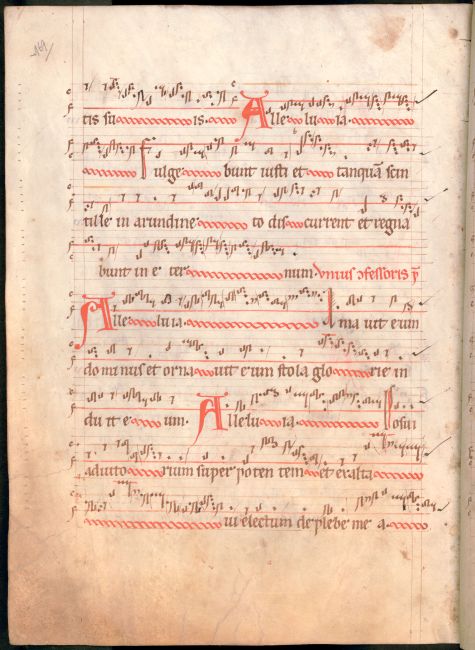 tis su is. Alle lu ia.
Fulge bunt iusti et tanquā scin
tille in arundine to dis current et regna
bunt in e ter num. Vnius ꝯfessoris
Alle luia. Ama uit eum
dominus et orna uit eum stola glo rie in
du it e um. Alleluia. Posui
adiuto rium super poten tem et exalta
ui electum de plebe me a.